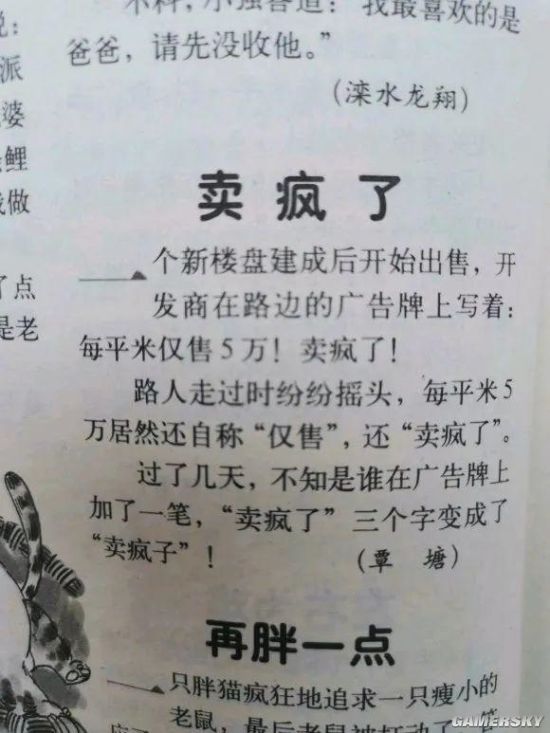 ：
派
婆
鲤
做
了点
是老
不料，小强答道：“我最喜欢的是
爸爸，请先没收他。”
（滦水龙翔）
卖疯了
一个新楼盘建成后开始出售，开
发商在路边的广告牌上写着：
每平米仅售5万！卖疯了！
路人走过时纷纷摇头，每平米5
万居然还自称“仅售”，还“卖疯了”。
过了几天，不知是谁在广告牌上
加了一笔，“卖疯了”三个字变成了
“卖疯子”！（覃塘）
再胖一点
一只胖猫疯狂地追求一只瘦小的
老鼠，最后老鼠被打动了，
GAMERSKY